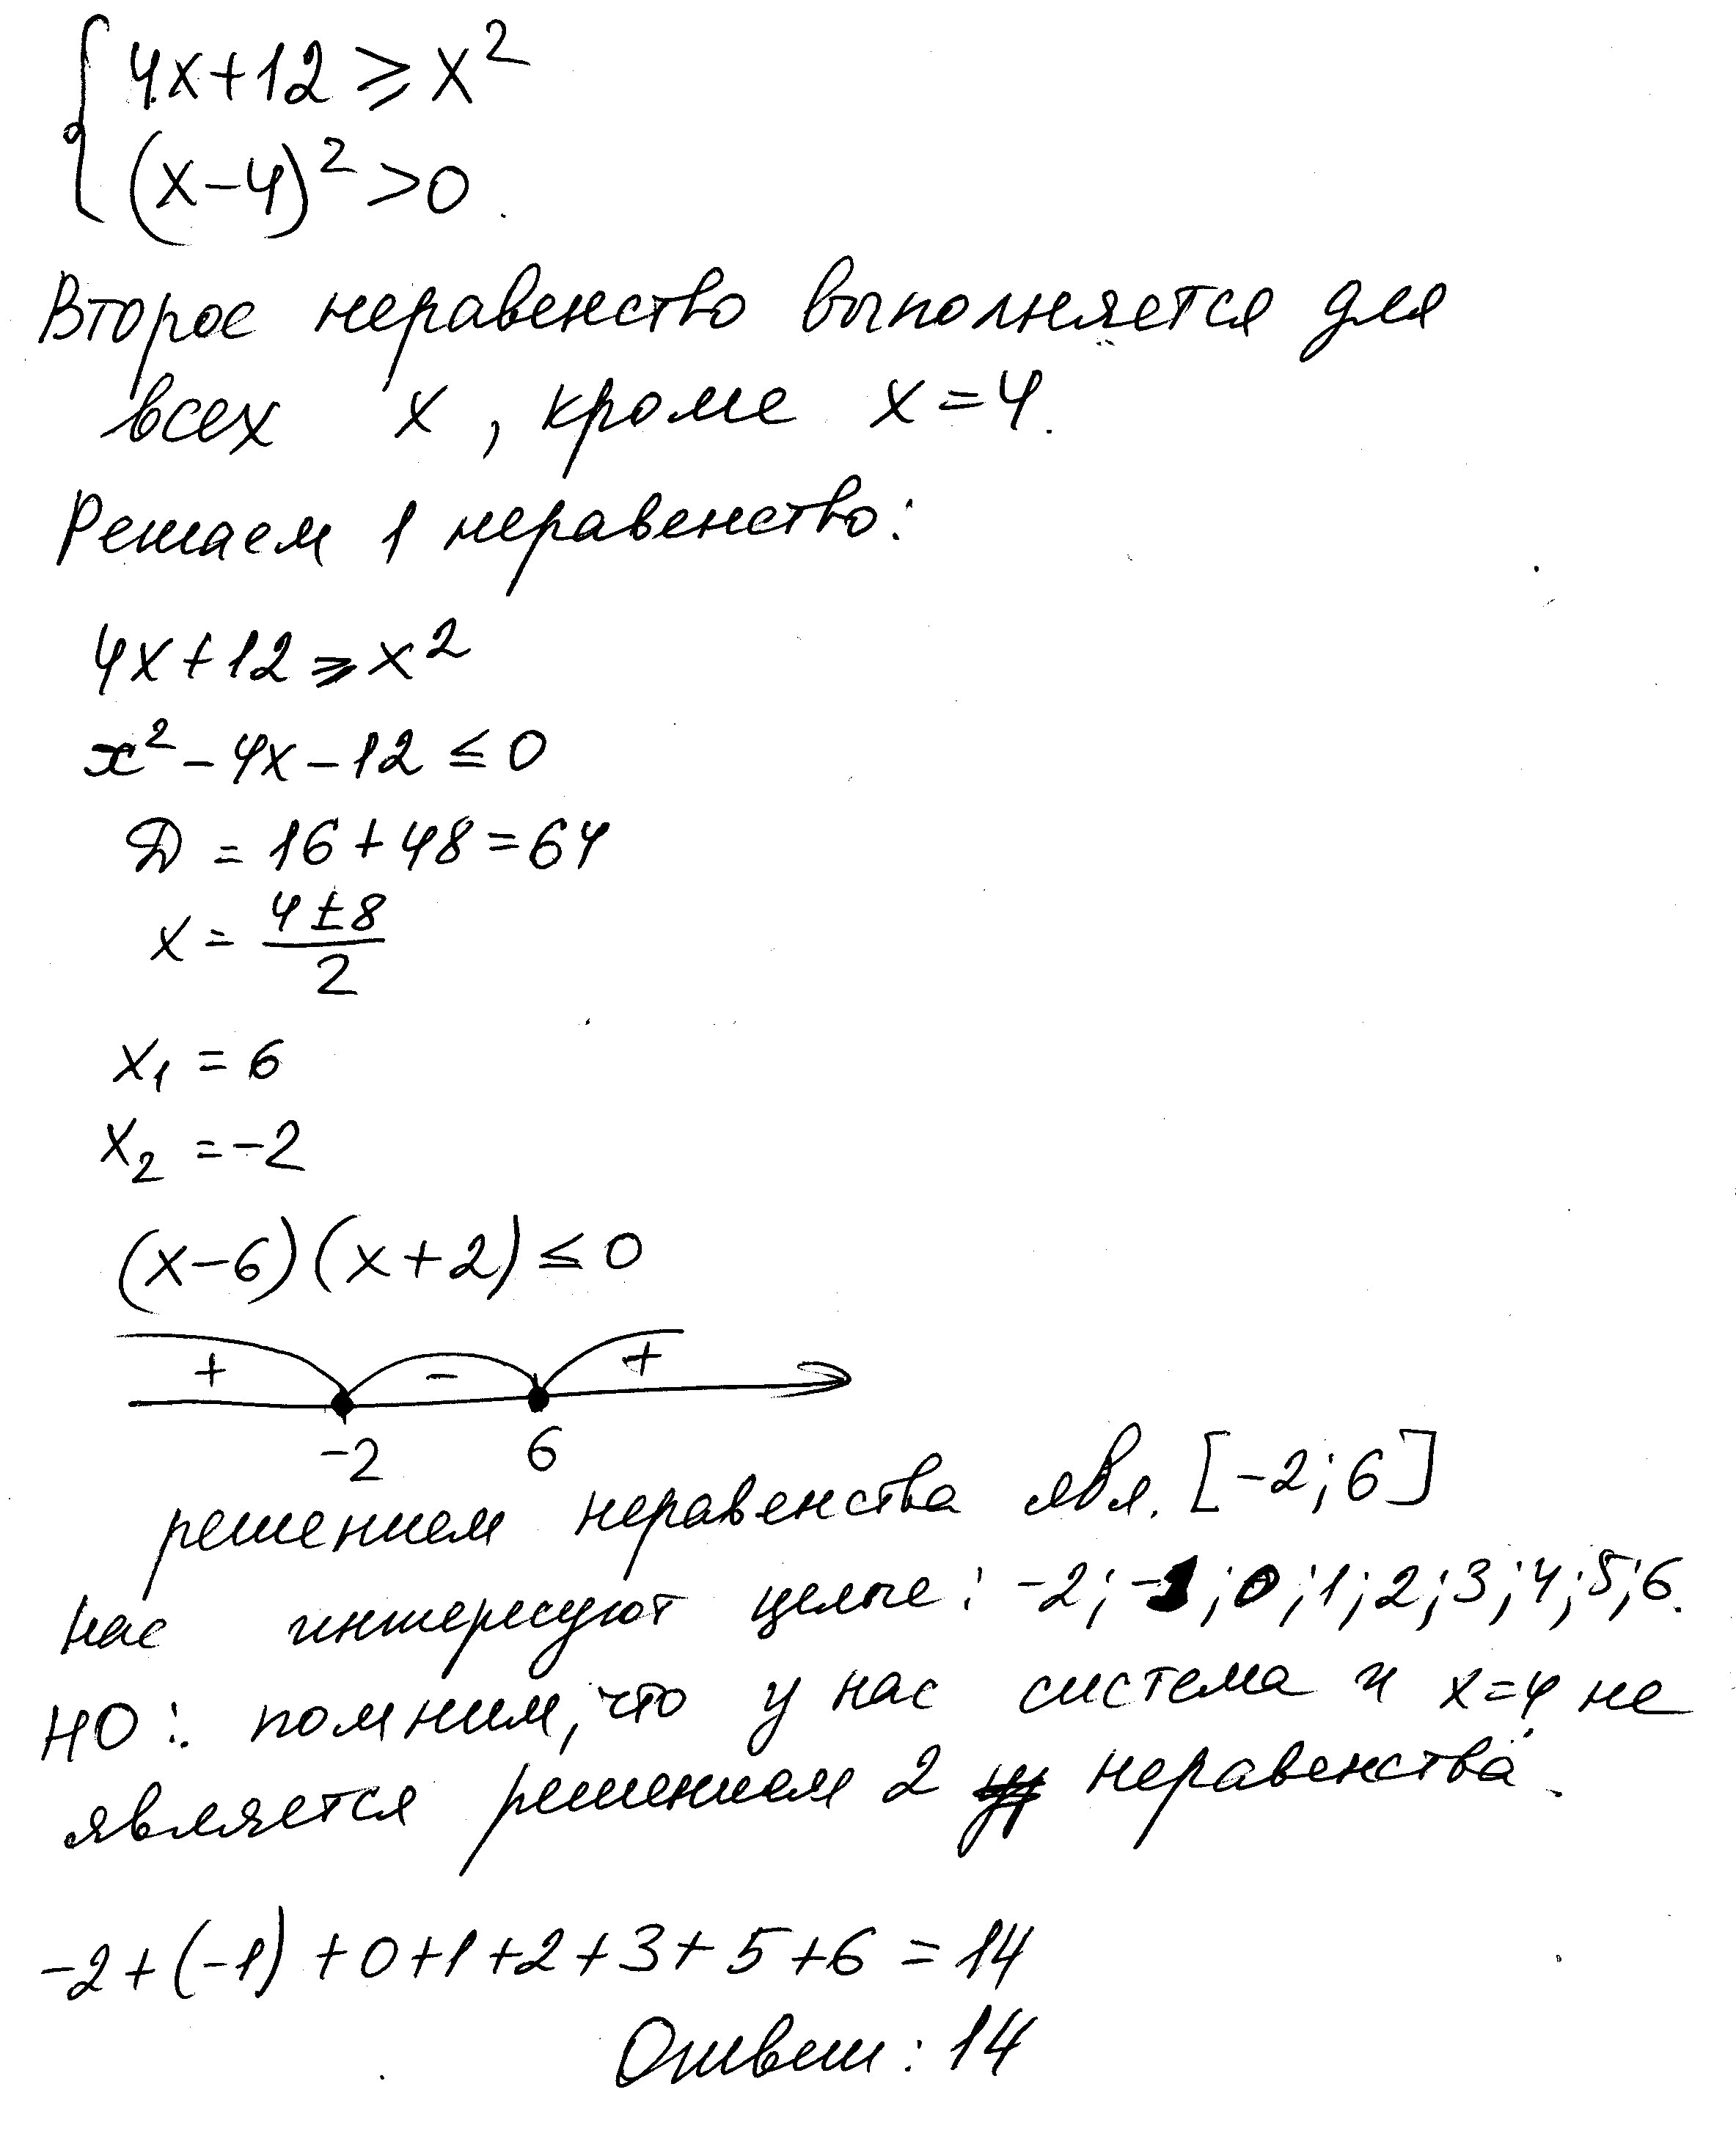 { 4x+12 ≥ x²
(x-4)² > 0.
Второе неравенство выполняется для
всех x, кроме x=4.
Решаем 1 неравенство:
4x+12 ≥ x²
x² - 4x - 12 ≤ 0
D = 16 + 48 = 64
x = (4±8)/2
x₁ = 6
x₂ = -2
(x-6)(x+2) ≤ 0
+ - +
-2 6
решением неравенства явл. [-2;6]
Нас интересуют целые: -2; -1; 0; 1; 2; 3; 4; 5; 6.
НО: помним, что у нас система и x=4 не
является решением 2 неравенства.
-2+(-1)+0+1+2+3+5+6=14
Ответ: 14